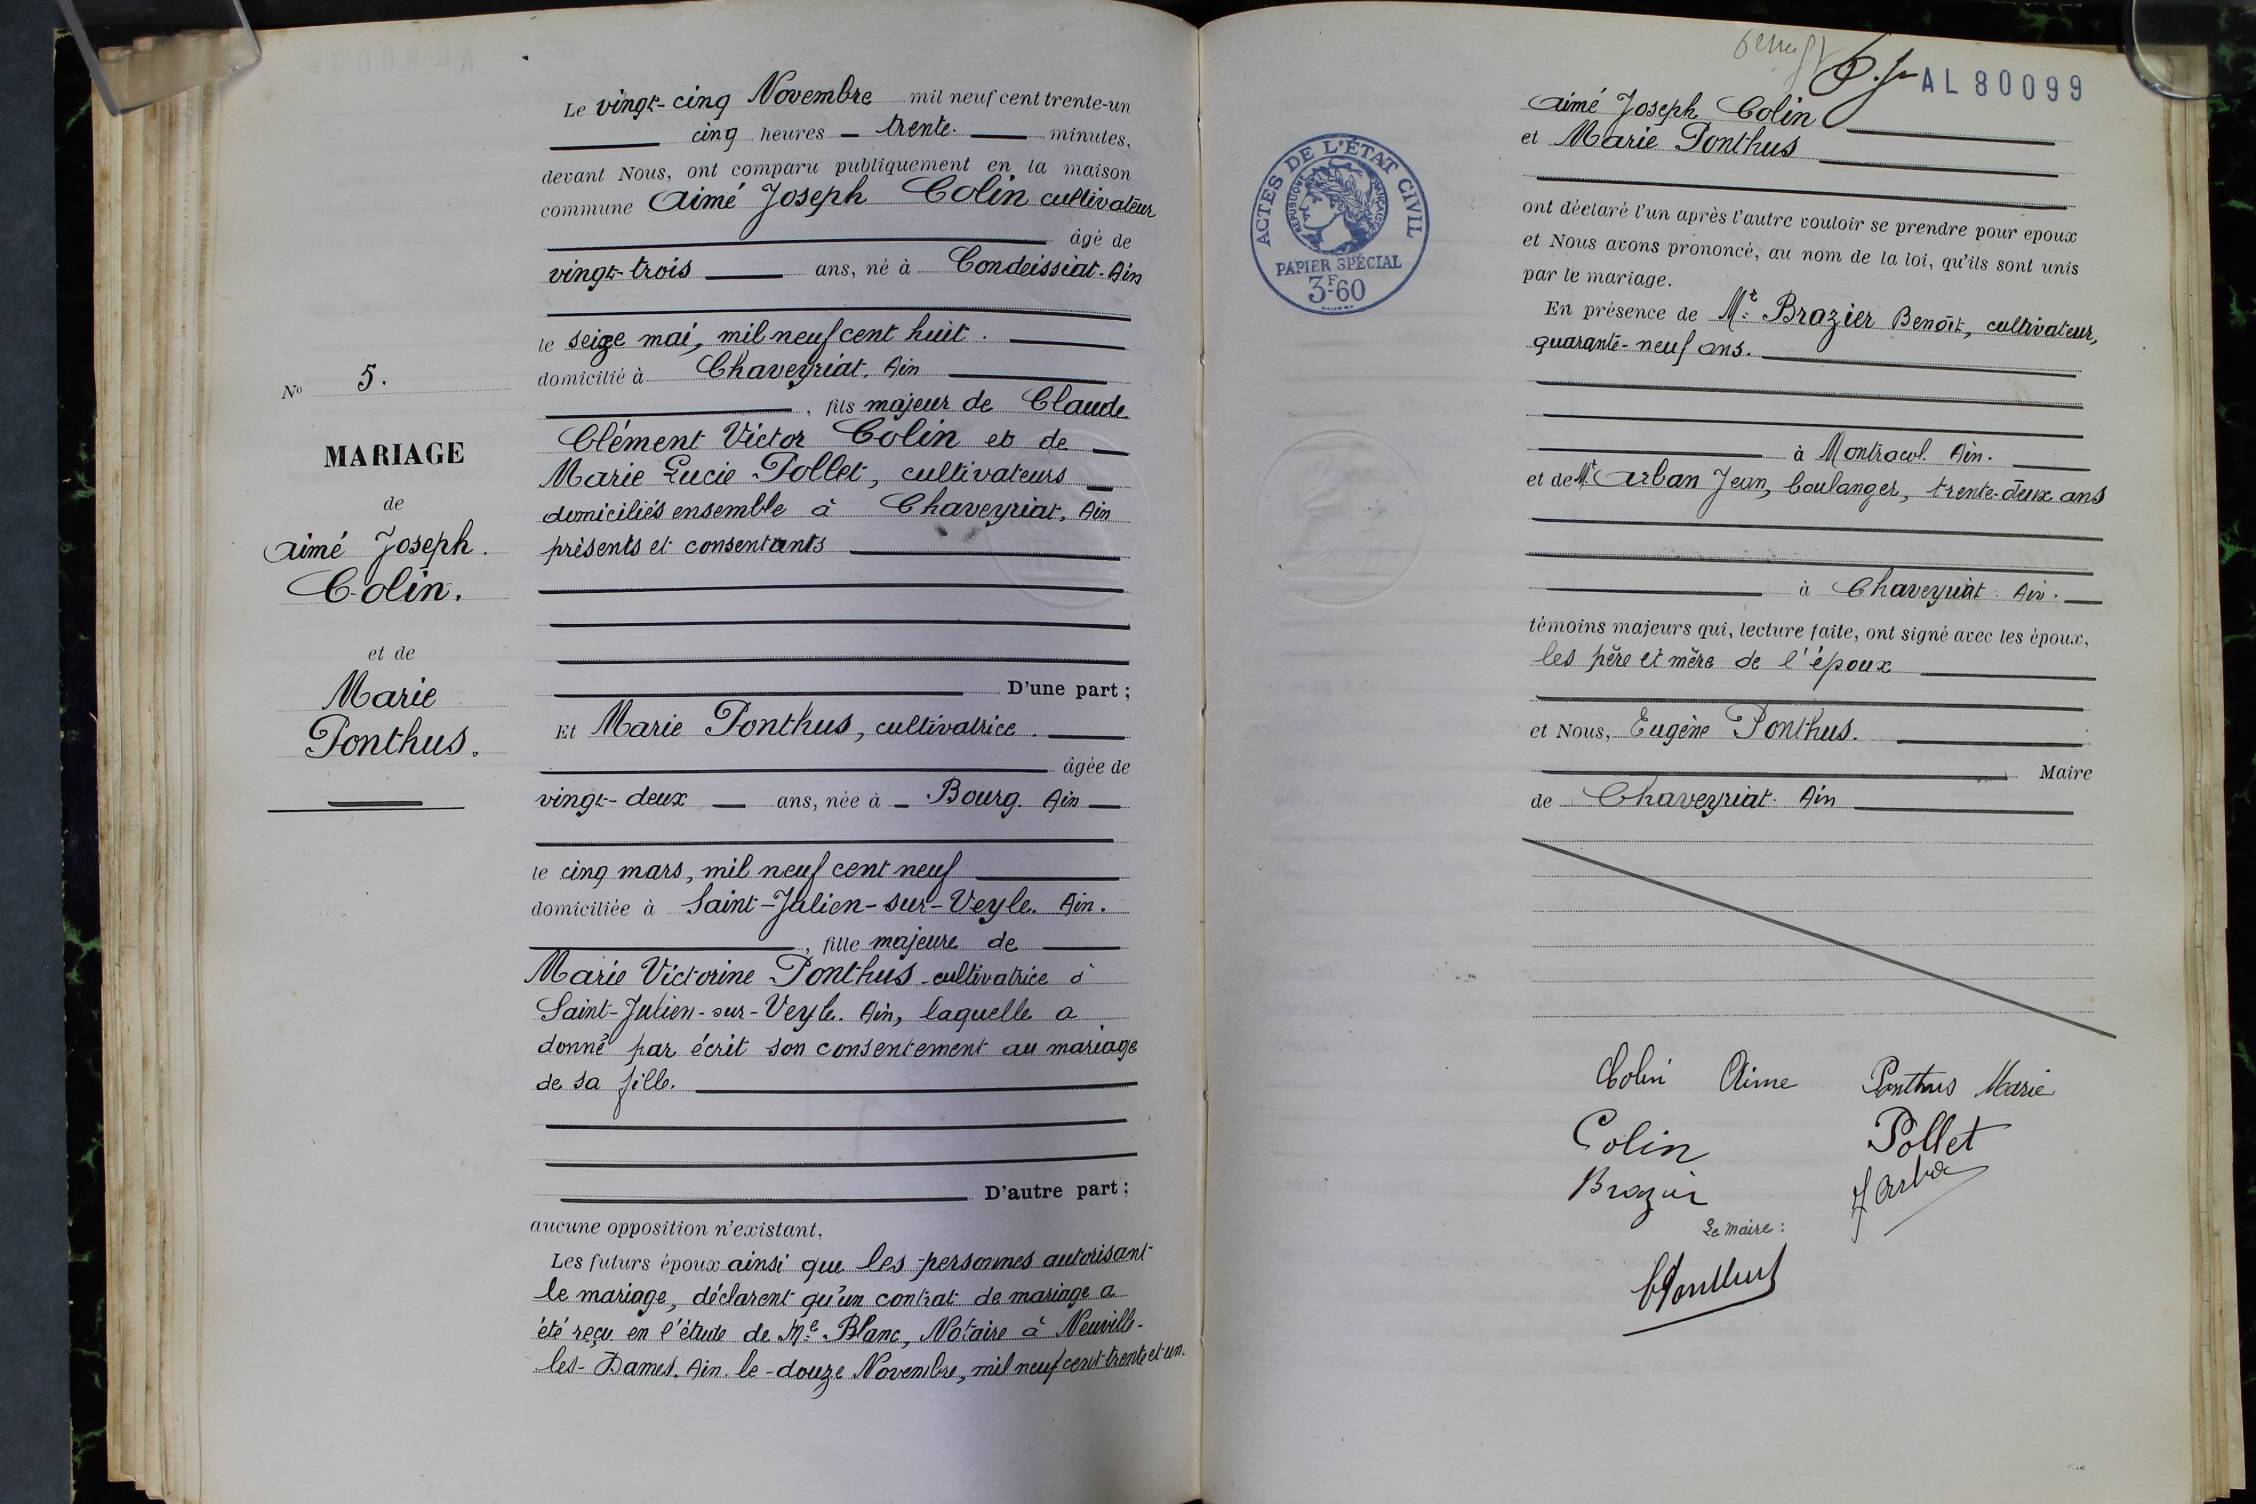 Le vingt-cinq Novembre mil neuf cent trente-un
cinq heures trente minutes,
devant Nous, ont comparu publiquement en la maison
commune Aimé Joseph Colin cultivateur
âgé de
vingt-trois ans, né à Condeissiat. Ain
le seize mai, mil neuf cent huit.
domicilié à Chaveyriat. Ain
, fils majeur de Claude
Clément Victor Colin et de
Marie Lucie Pollet, cultivateurs
domiciliés ensemble à Chaveyriat, Ain
présents et consentants
D'une part ;
Et Marie Ponthus, cultivatrice.
âgée de
vingt-deux ans, née à Bourg. Ain
le cinq mars, mil neuf cent neuf
domiciliée à Saint-Julien-sur-Veyle. Ain.
, fille majeure de
Marie Victorine Ponthus cultivatrice à
Saint-Julien-sur-Veyle. Ain, laquelle a
donné par écrit son consentement au mariage
de sa fille.
D'autre part ;
aucune opposition n'existant,
Les futurs époux ainsi que les personnes autorisant
le mariage, déclarent qu'un contrat de mariage a
été reçu en l'étude de Me. Blanc, Notaire à Neuville-
les-Dames. Ain. le douze Novembre, mil neuf cent trente et un.
No 5.
MARIAGE
de
Aimé Joseph.
Colin.
et de
Marie
Ponthus.
AL 80099
Aimé Joseph Colin
et Marie Ponthus
ont déclaré l'un après l'autre vouloir se prendre pour epoux
et Nous avons prononcé, au nom de la loi, qu'ils sont unis
par le mariage.
En présence de Mt. Brazier Benoît, cultivateur,
quarante-neuf ans.
à Montracol. Ain.
et de Mt. Arban Jean, boulanger, trente-deux ans
à Chaveyriat. Ain.
témoins majeurs qui, lecture faite, ont signé avec les époux,
les père et mère de l'époux
et Nous, Eugène Ponthus.
Maire
de Chaveyriat. Ain
Colin Aime Ponthus Marie
Colin Pollet
Brazier J Arban
Le maire :
EPonthus
ACTES DE L'ÉTAT CIVIL
RÉPUBLIQUE FRANÇAISE
PAPIER SPÉCIAL
3F60